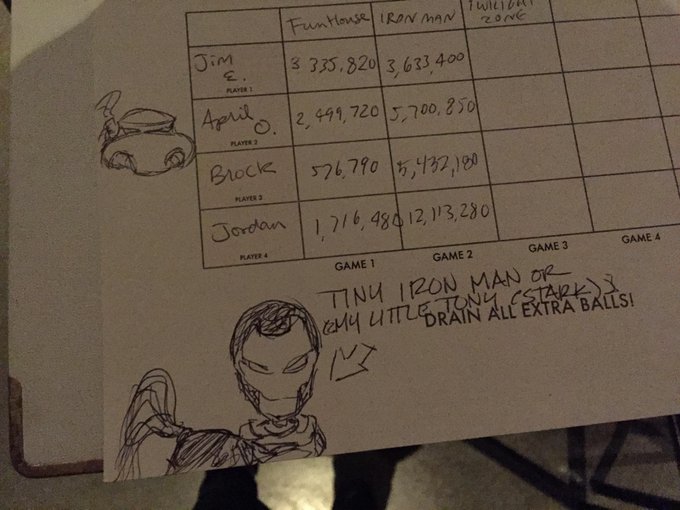 FunHouse IRON MAN TWILIGHT ZONE
Jim E. 3 335,820 3,633,400
PLAYER 1
April O. 2,499,720 5,700,850
PLAYER 2
Brock 576,790 5,432,180
PLAYER 3
Jordan 1,716,480 12,113,280
PLAYER 4
GAME 1 GAME 2 GAME 3 GAME 4
TINY IRON MAN OR
(MY LITTLE TONY (STARK))
DRAIN ALL EXTRA BALLS!